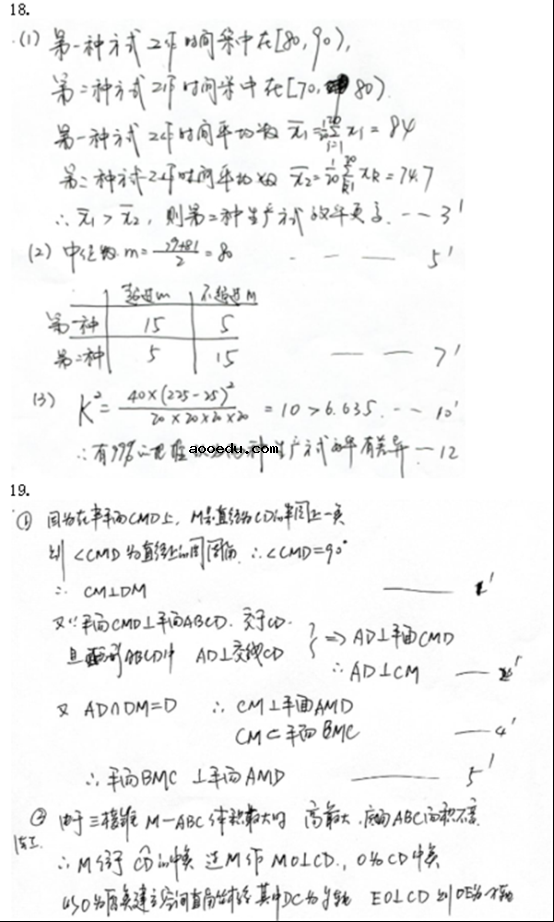 18.
(1) 第一种方式工作时间集中在[80,90),
第二种方式工作时间集中在[70, 80).
第一种方式工作时间平均数 x̄₁=1/20 Σ(i=1→20) x₁=84
第二种方式工作时间平均数 x̄₂=1/20 Σ(k=1→20) xₖ=74.7
∴ x̄₁>x̄₂, 则第二种生产方式效率更高. -- 3'
(2) 中位数 m=(79+81)/2=80 - — — 5'
超过m 不超过M
第一种 15 5
第二种 5 15 — — 7'
(3) K²=40×(225-25)²/(20×20×20×20)=10>6.635. -- 10'
∴有99% 种生产方式 有差异 — 12
aooedu.com
19.
① 因为在半平面CMD上, M是直径为CD的半圆上一点
则 <CMD为直径上的圆周角 ∴<CMD=90°
∴ CM⊥DM —— 1'
又∵平面CMD⊥平面ABCD. 交于CD.
且 ABCD中 AD⊥交线CD } ⇒ AD⊥平面CMD
∴ AD⊥CM —
又 AD∩DM=D ∴ CM⊥平面AMD
CM⊂平面BMC — 4'
∴平面BMC ⊥平面AMD —— 5'
② 由于三棱锥 M-ABC 体积最大时 高最大, 底面ABC面积不变
法I.
∴ M位于 CD的中点 过M作 MO⊥CD., O为CD中点
以O为原点建立空间直角坐标系 其中DC为y轴 EO⊥CD 则OE为x轴